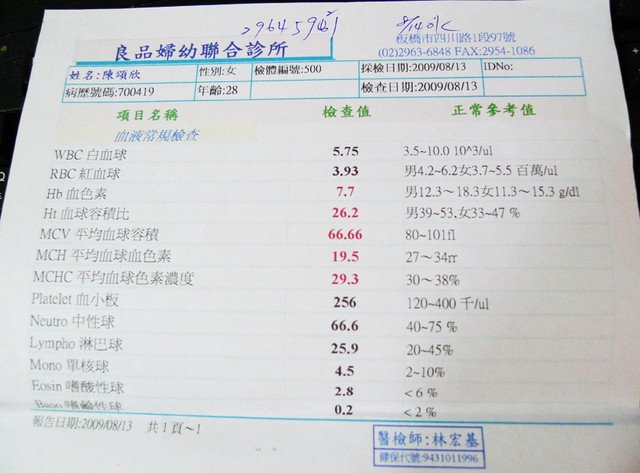 29645941
8/14 01k
良品婦幼聯合診所
板橋市四川路1段97號
(02)2963-6848 FAX:2954-1086
姓名:陳頌欣 性別:女 檢體編號:500 採檢日期:2009/08/13 IDNo:
病歷號碼:700419 年齡:28 檢查日期:2009/08/13
項目名稱 檢查值 正常參考值
血液常規檢查
WBC 白血球 5.75 3.5~10.0 10^3/ul
RBC 紅血球 3.93 男4.2~6.2女3.7~5.5 百萬/ul
Hb 血色素 7.7 男12.3～18.3女11.3～15.3 g/dl
Ht 血球容積比 26.2 男39~53,女33~47 %
MCV 平均血球容積 66.66 80~101fl
MCH 平均血球血色素 19.5 27～34rr
MCHC 平均血球色素濃度 29.3 30～38%
Platelet 血小板 256 120~400 千/ul
Neutro 中性球 66.6 40~75 %
Lympho 淋巴球 25.9 20~45%
Mono 單核球 4.5 2~10%
Eosin 嗜酸性球 2.8 < 6 %
Baso 嗜鹼性球 0.2 < 2 %
報告日期:2009/08/13 共1頁~1
醫檢師:林宏基
健保代號:9431011996